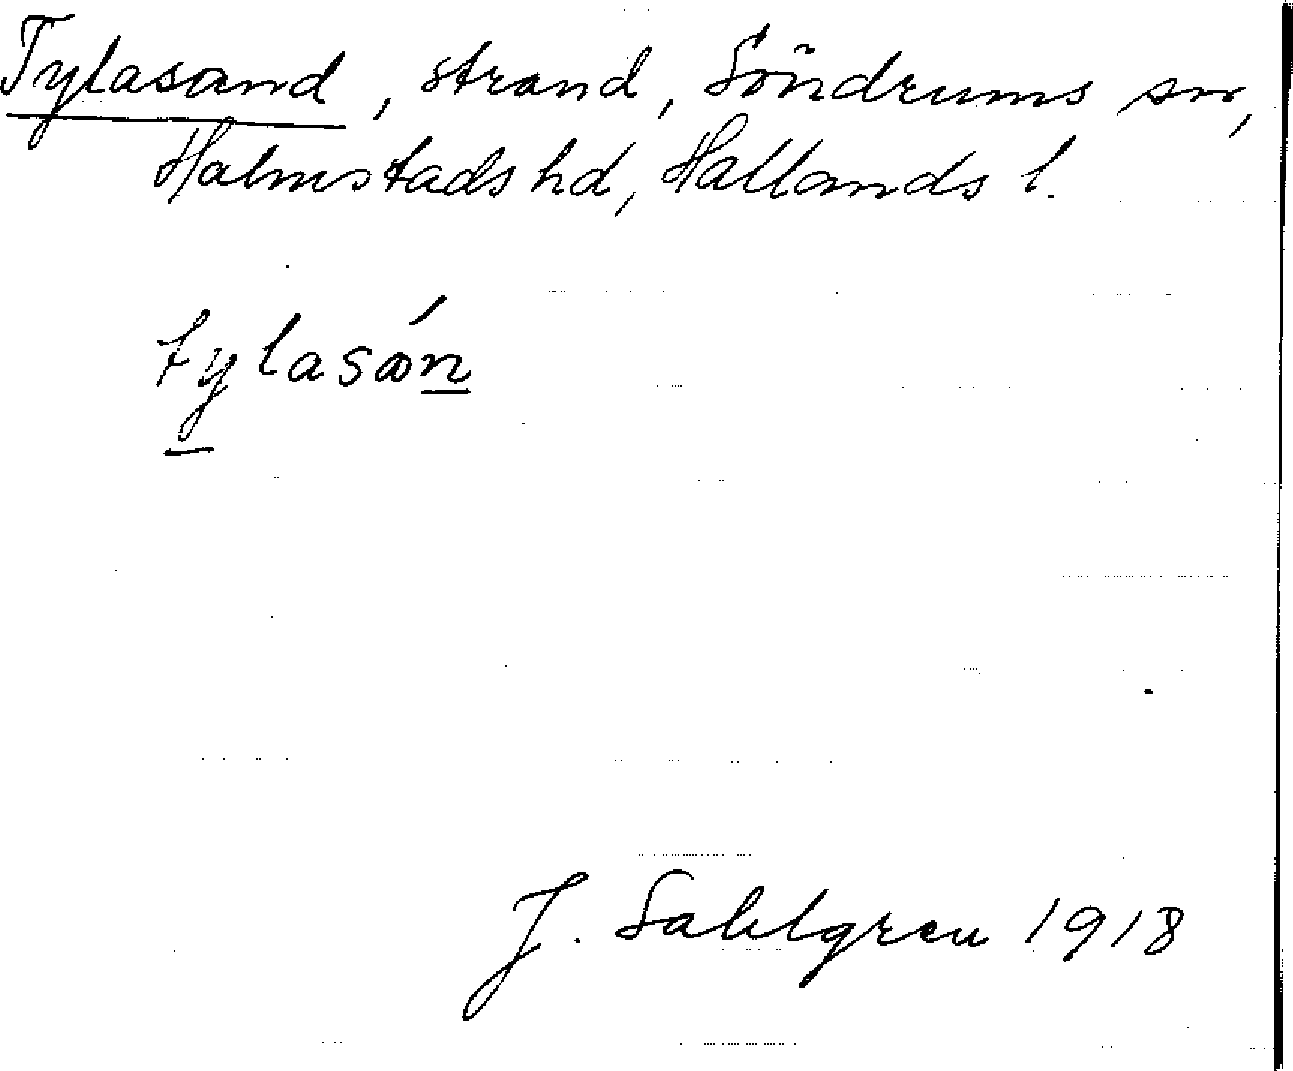 Tylasand, strand, Söndrums sn,
Halmstads hd, Hallands l.
tylasán
J. Sahlgren 1918